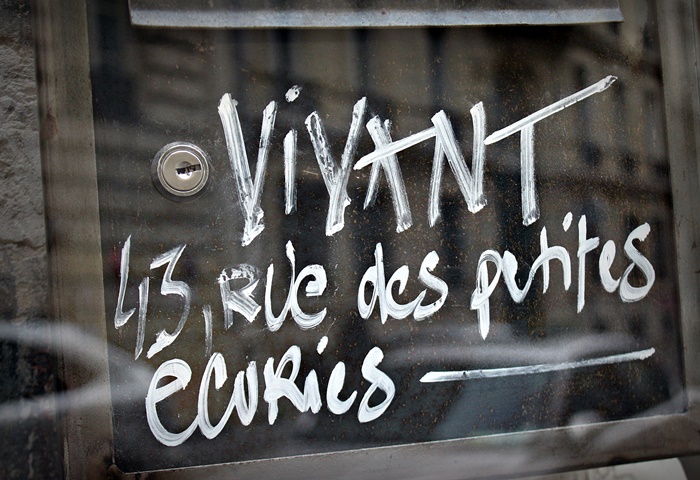 ViVANT
43, RUe des petites
écuRies —